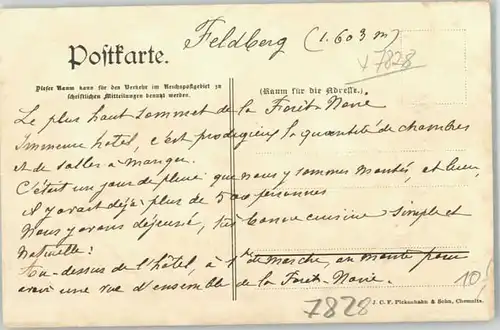 Feldberg (1.603 m)
+ 7828
Postkarte.
Dieser Raum kann für den Verkehr im Reichspostgebiet zu
schriftlichen Mitteilungen benutzt werden.
(Raum für die Adresse.)
Le plus haut sommet de la Forêt-Noire
Immense hôtel, c'est prodigieux la quantité de chambres
et de salles à manger.
C'était un jour de pluie que nous y sommes montés, et
il y avait déjà plus de 500 personnes
Nous y avons déjeuné, très bonne cuisine simple et
naturelle!
Au-dessus de l'hôtel, à 1 de marche, on monte pour
avoir une vue d'ensemble de la Forêt-Noire.
10.
7828
J. C. F. Pickenhahn & Sohn, Chemnitz.